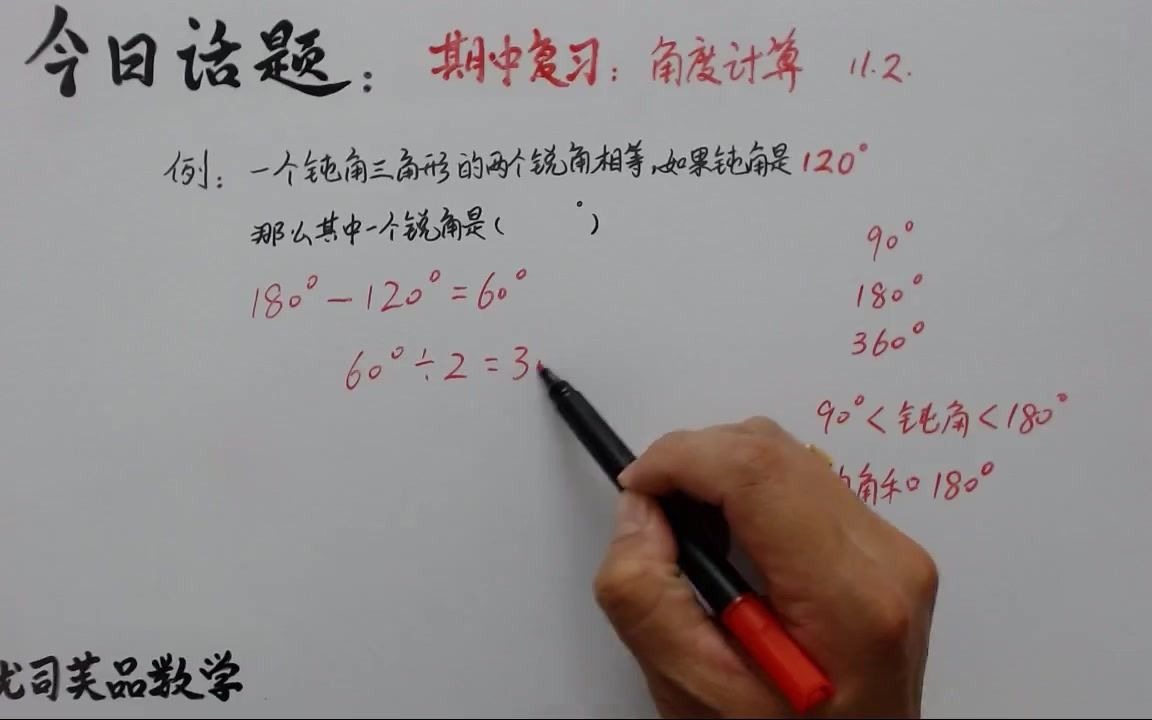 今日话题：期中复习：角度计算 11.2.
例：一个钝角三角形的两个锐角相等，如果钝角是120°
那么其中一个锐角是（ °）
180°－120°＝60°
60°÷2＝3
90°
180°
360°
90°＜钝角＜180°
角和180°
司芙品数学